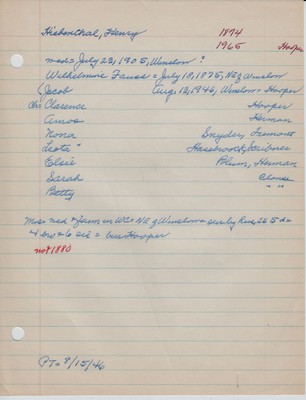 Hiebenthal, Henry 1874
1965 Hooper
mod July 23, 1905, Winslow ?
Wilhelmine Zauss = July 18, 1875, NE of Winslow
(Jacob Aug, 12, 1946, Winslow = Hooper
chi Clarence Hooper
Amos Herman
Nona Snyder, Fremont
Leota " Hasebroock, Scribner
Elsie Plum, Herman
Sarah Clouse
Betty " "
Mos med = farm in WC = NE of Winslow = surby Rud, 2S 5 d =
4 bro = 6 sis = bur Hooper
not 1880
PT = 9/15/46